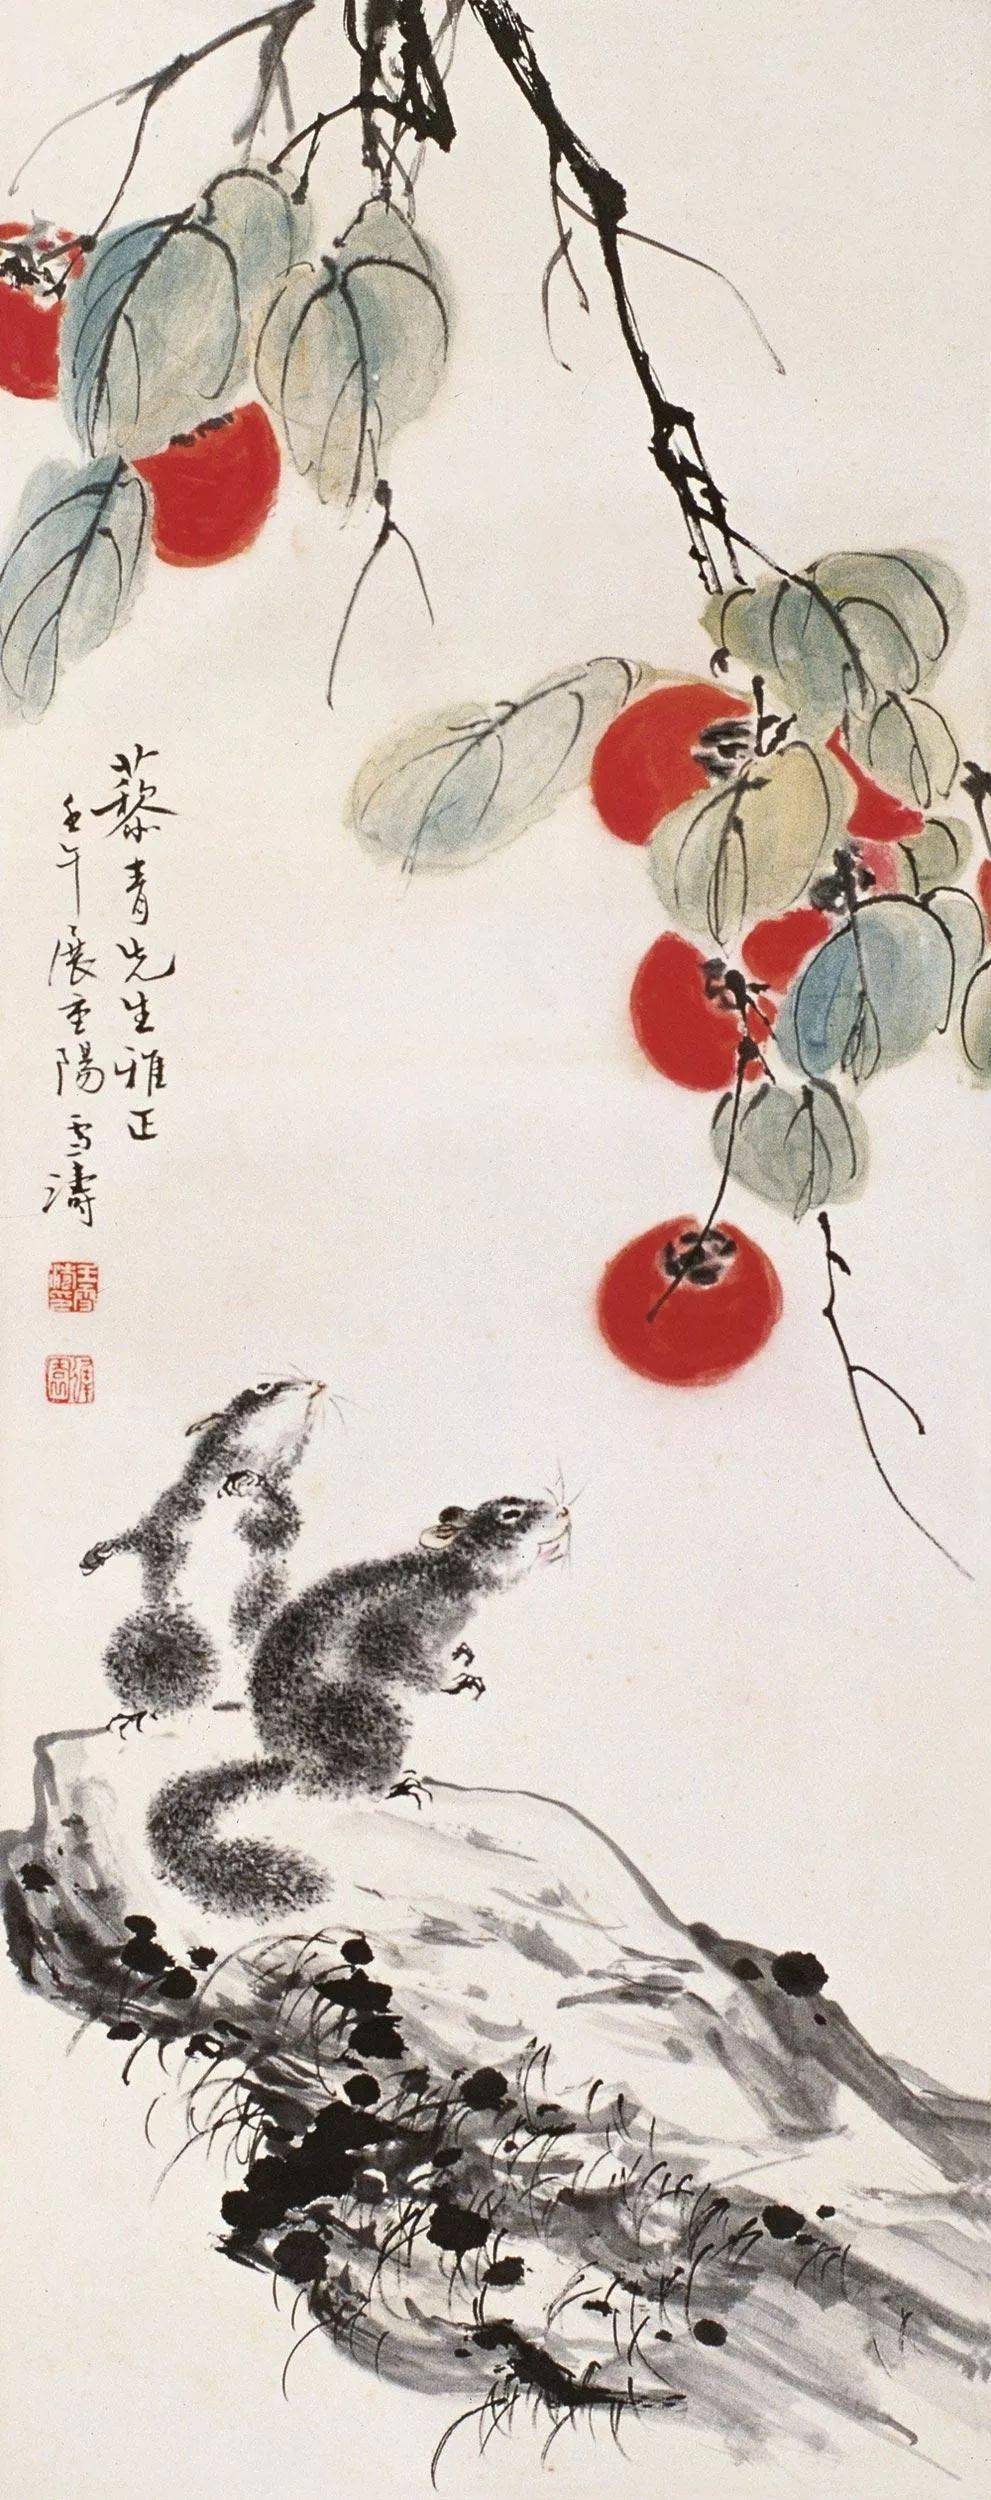 藜青先生雅正
壬午展重陽雪濤
王雪濤印
遲園